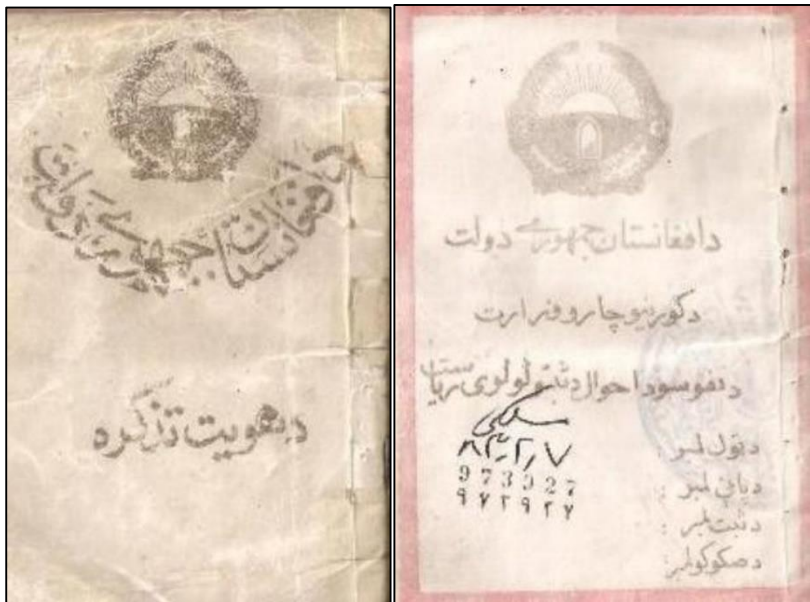 دافغانستان جمهوری دولت
دهویت تذکره
دافغانستان جمهوری دولت
دکورنیو چارو وزارت
دنفوسو داحوال دثبتولو لوی ریاست
دټول لمبر :
973927
دپاڼی لمبر :
۹۷۳۹۲۷
دثبت لمبر :
دصکوکو لمبر: